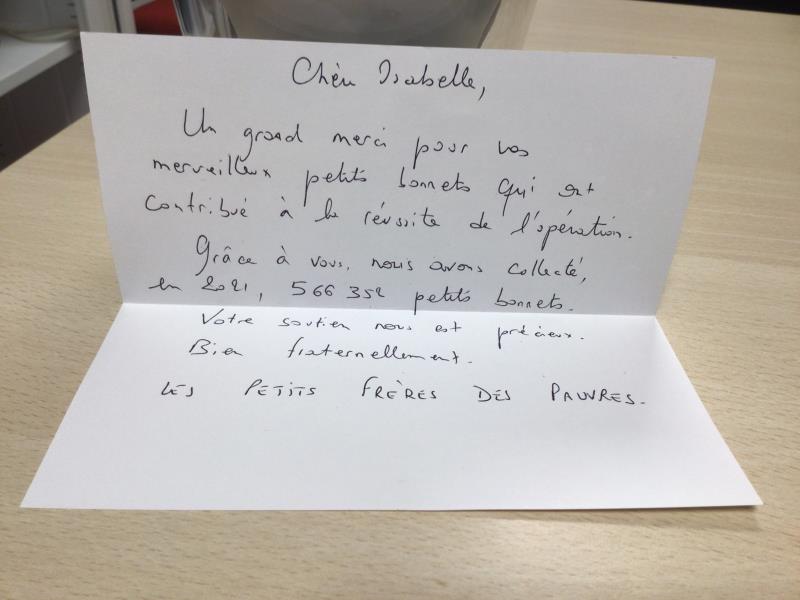 Chère Isabelle,
Un grand merci pour vos
merveilleux petits bonnets qui ont
contribué à la réussite de l'opération.
Grâce à vous, nous avons collecté,
en 2021, 566 352 petits bonnets.
Votre soutien nous est précieux.
Bien fraternellement.
LES PETITS FRÈRES DES PAUVRES.